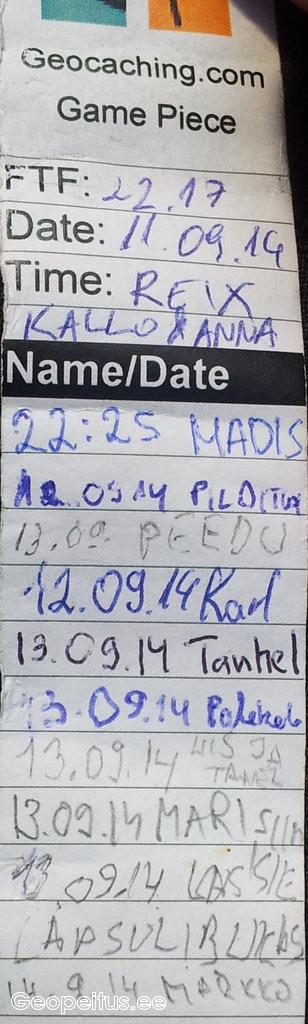 Geocaching.com
Game Piece
FTF: 22.17
Date: 11.09.14
Time: REIX
KALLO & ANNA
Name/Date
22:25 MADIS
12.09.14
13.09 PEEDU
12.09.14
13.09.14 Tanhel
13.09.14
13.09.14 LIIS JA
TANEL
13.09.14
13.09.14 LASSIE
14.9.14 MARKKO
Geopeitus.ee